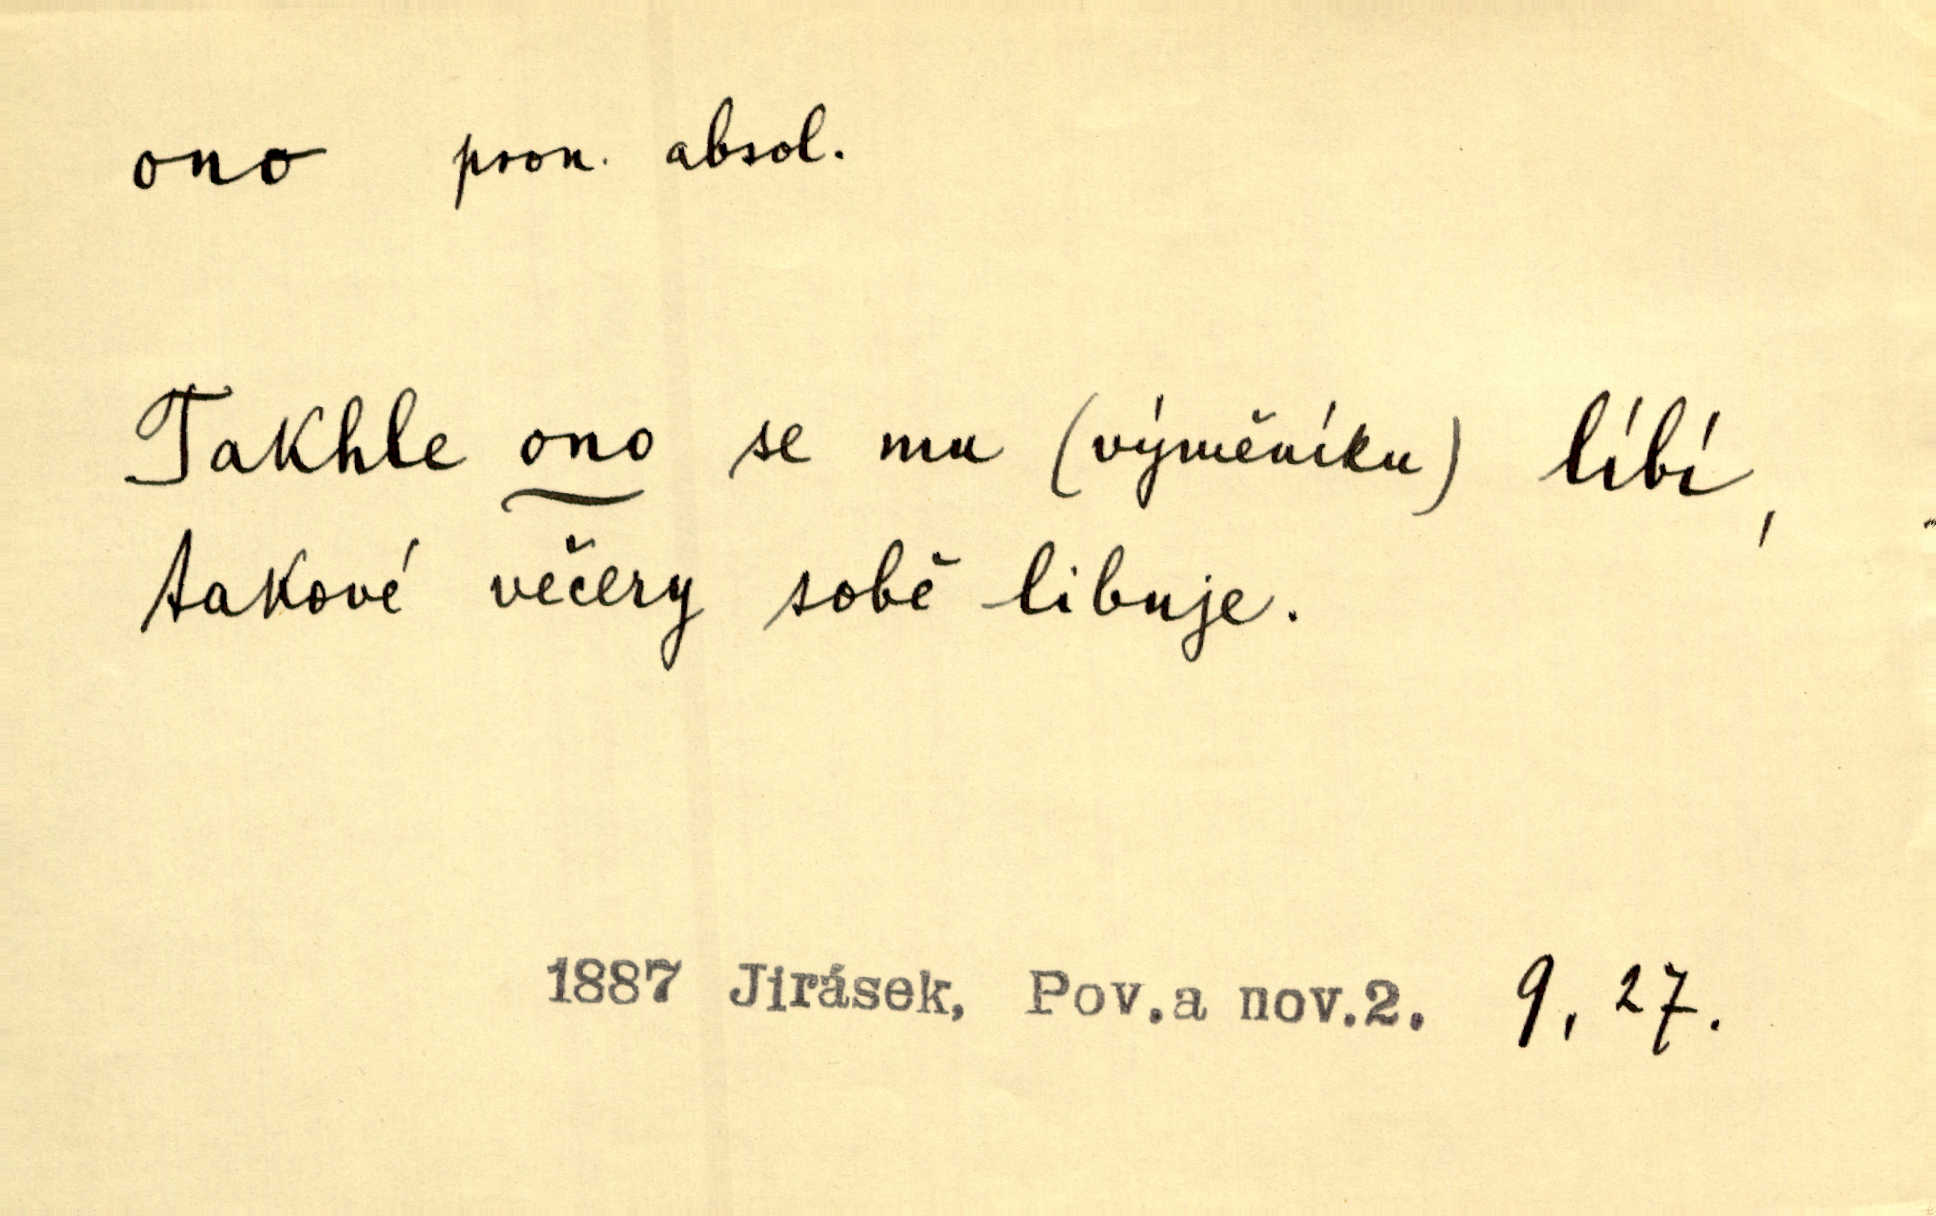 ono pron. absol.
Takhle ono se mu (výměníku) líbí,
takové večery sobě libuje.
1887 Jirásek, Pov.a nov.2. 9, 27.